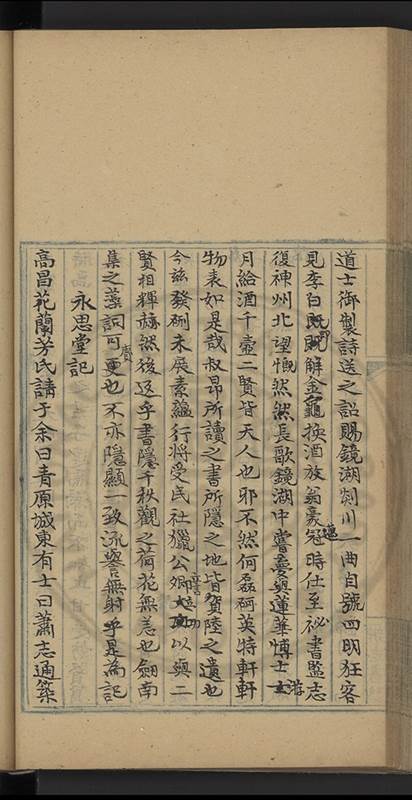 道士御製詩送之詔賜鏡湖剡川一曲自號四明狂客
見李白既解金龜換酒放翁豪邁冠時仕至祕書監志
復神州北望慨然然長歌鏡湖中嘗夢與蓮華博士游
月給酒千壺二賢皆天人也邪不然何磊砢英特軒軒
物表如是哉叔昂所讀之書所隱之地皆賀陸之遺也
今茲發硎未展素蘊行將受民社獵公卿以與二
賢相輝赫然後返乎書隱千秋觀之荷花無恙也劍南
集之藻詞可賡也不亦隱顯一致流譽無射乎是為記
永思堂記
高昌花蘭芳氏請于余曰青原城東有士曰蕭志通築